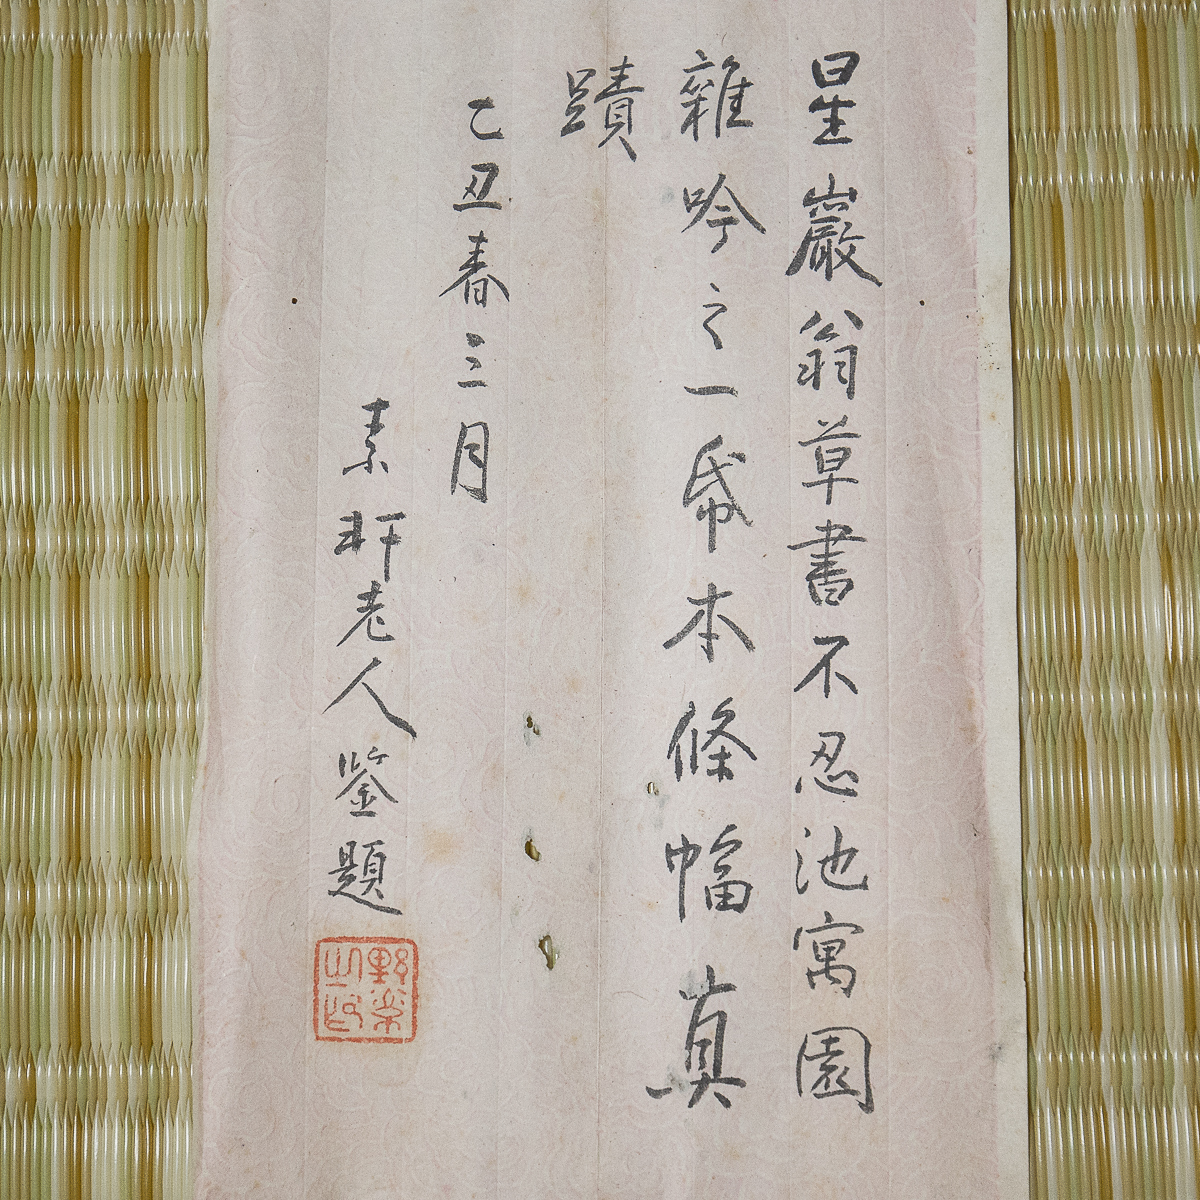 星巖翁草書不忍池寓園
雜吟之一帋本條幅真
蹟
乙丑春三月
素軒老人鑒題
野染之印